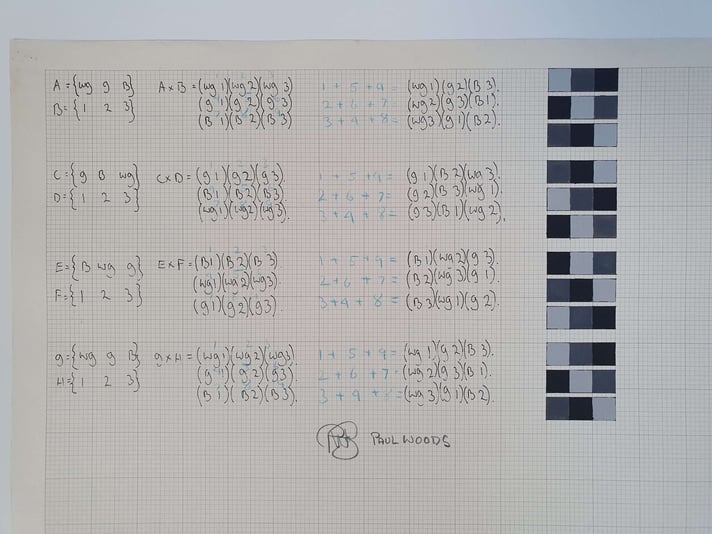 A = {wg g B} A × B = (wg 1)(wg 2)(wg 3) 1 + 5 + 9 = (wg 1)(g 2)(B 3).
B = {1 2 3} (g 1)(g 2)(g 3) 2 + 6 + 7 = (wg 2)(g 3)(B 1).
(B 1)(B 2)(B 3) 3 + 4 + 8 = (wg 3)(g 1)(B 2).
C = {g B wg} C × D = (g 1)(g 2)(g 3) 1 + 5 + 9 = (g 1)(B 2)(wg 3).
D = {1 2 3} (B 1)(B 2)(B 3) 2 + 6 + 7 = (g 2)(B 3)(wg 1).
(wg 1)(wg 2)(wg 3). 3 + 4 + 8 = (g 3)(B 1)(wg 2).
E = {B wg g} E × F = (B 1)(B 2)(B 3). 1 + 5 + 9 = (B 1)(wg 2)(g 3).
F = {1 2 3} (wg 1)(wg 2)(wg 3). 2 + 6 + 7 = (B 2)(wg 3)(g 1).
(g 1)(g 2)(g 3) 3 + 4 + 8 = (B 3)(wg 1)(g 2).
g = {wg g B} g × H = (wg 1)(wg 2)(wg 3). 1 + 5 + 9 = (wg 1)(g 2)(B 3).
H = {1 2 3} (g 1)(g 2)(g 3). 2 + 6 + 7 = (wg 2)(g 3)(B 1).
(B 1)(B 2)(B 3). 3 + 4 + 8 = (wg 3)(g 1)(B 2).
PAUL WOODS